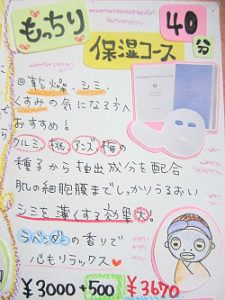 もっちり
40分
保湿コース
◎乾燥、シミ、
くすみの気になる方へ
おすすめ！
クルミ、桃、アンズ、梅の
種子から抽出成分を配合
肌の細胞膜までしっかりうるおい
シミを薄くする効果大！
ラベンダーの香りで
心もリラックス♥
¥3000+500 ¥3670